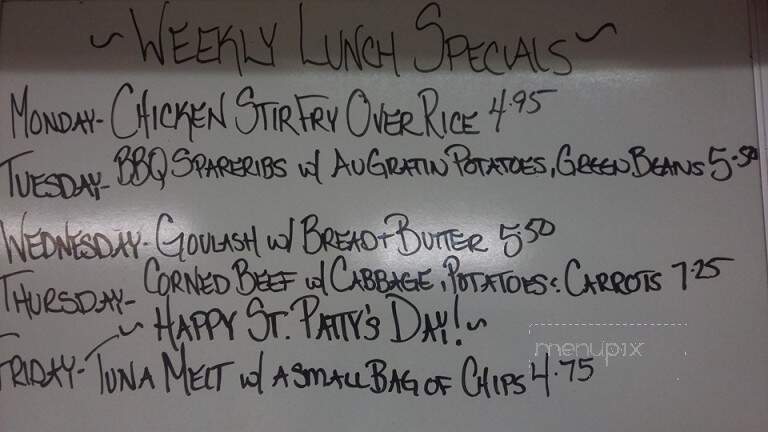 ~ WEEKLY LUNCH SPECIALS ~
MONDAY- CHICKEN STIR FRY OVER RICE 4.95
TUESDAY- BBQ SPARERIBS w/ AUGRATIN POTATOES, GREEN BEANS 5.50
WEDNESDAY- GOULASH w/ BREAD + BUTTER 5.50
THURSDAY- CORNED BEEF w/ CABBAGE, POTATOES & CARROTS 7.25
~ HAPPY ST. PATTY'S DAY! ~
FRIDAY- TUNA MELT w/ A SMALL BAG OF CHIPS 4.75
menupix